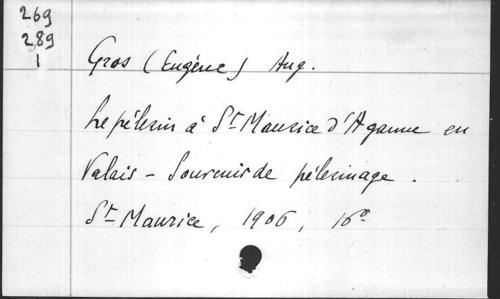 269
289
1
Gros (Eugène) Aug.
Le pélerin à St Maurice d'Agaune en
Valais - Souvenir de pélerinage.
St Maurice, 1906, 16°